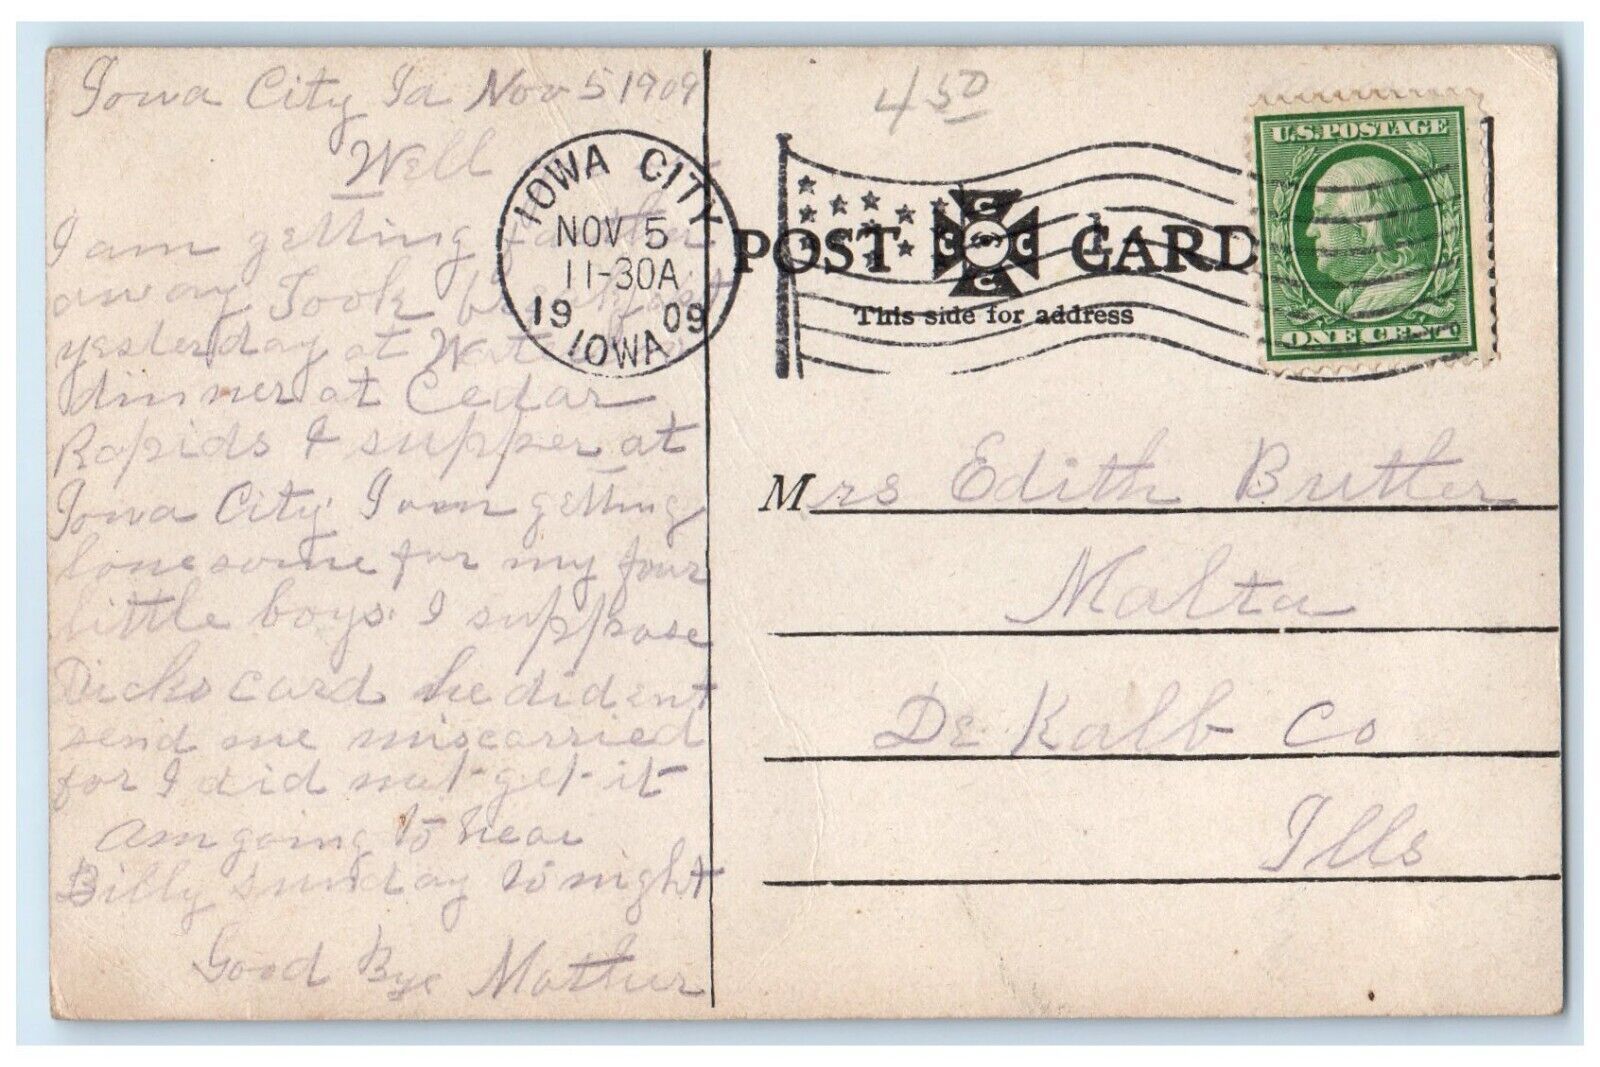 Iowa City Ia Nov 5 1909
Well
I am getting farther
away Took breakfast
yesterday at
dinner at Cedar
Rapids & supper at
Iowa City. I am getting
lonesome for my four
little boys. I suppose
Dicks card he did ent
send me miscarried
for I did not get it
am going to hear
Billy Sunday to night
Good Bye Mother
IOWA CITY
NOV 5
11-30A
1909
IOWA
4 50
POST CARD
C C C C
This side for address
U.S. POSTAGE
ONE CENT
Mrs Edith Butler
Malta
De Kalb Co
Ills